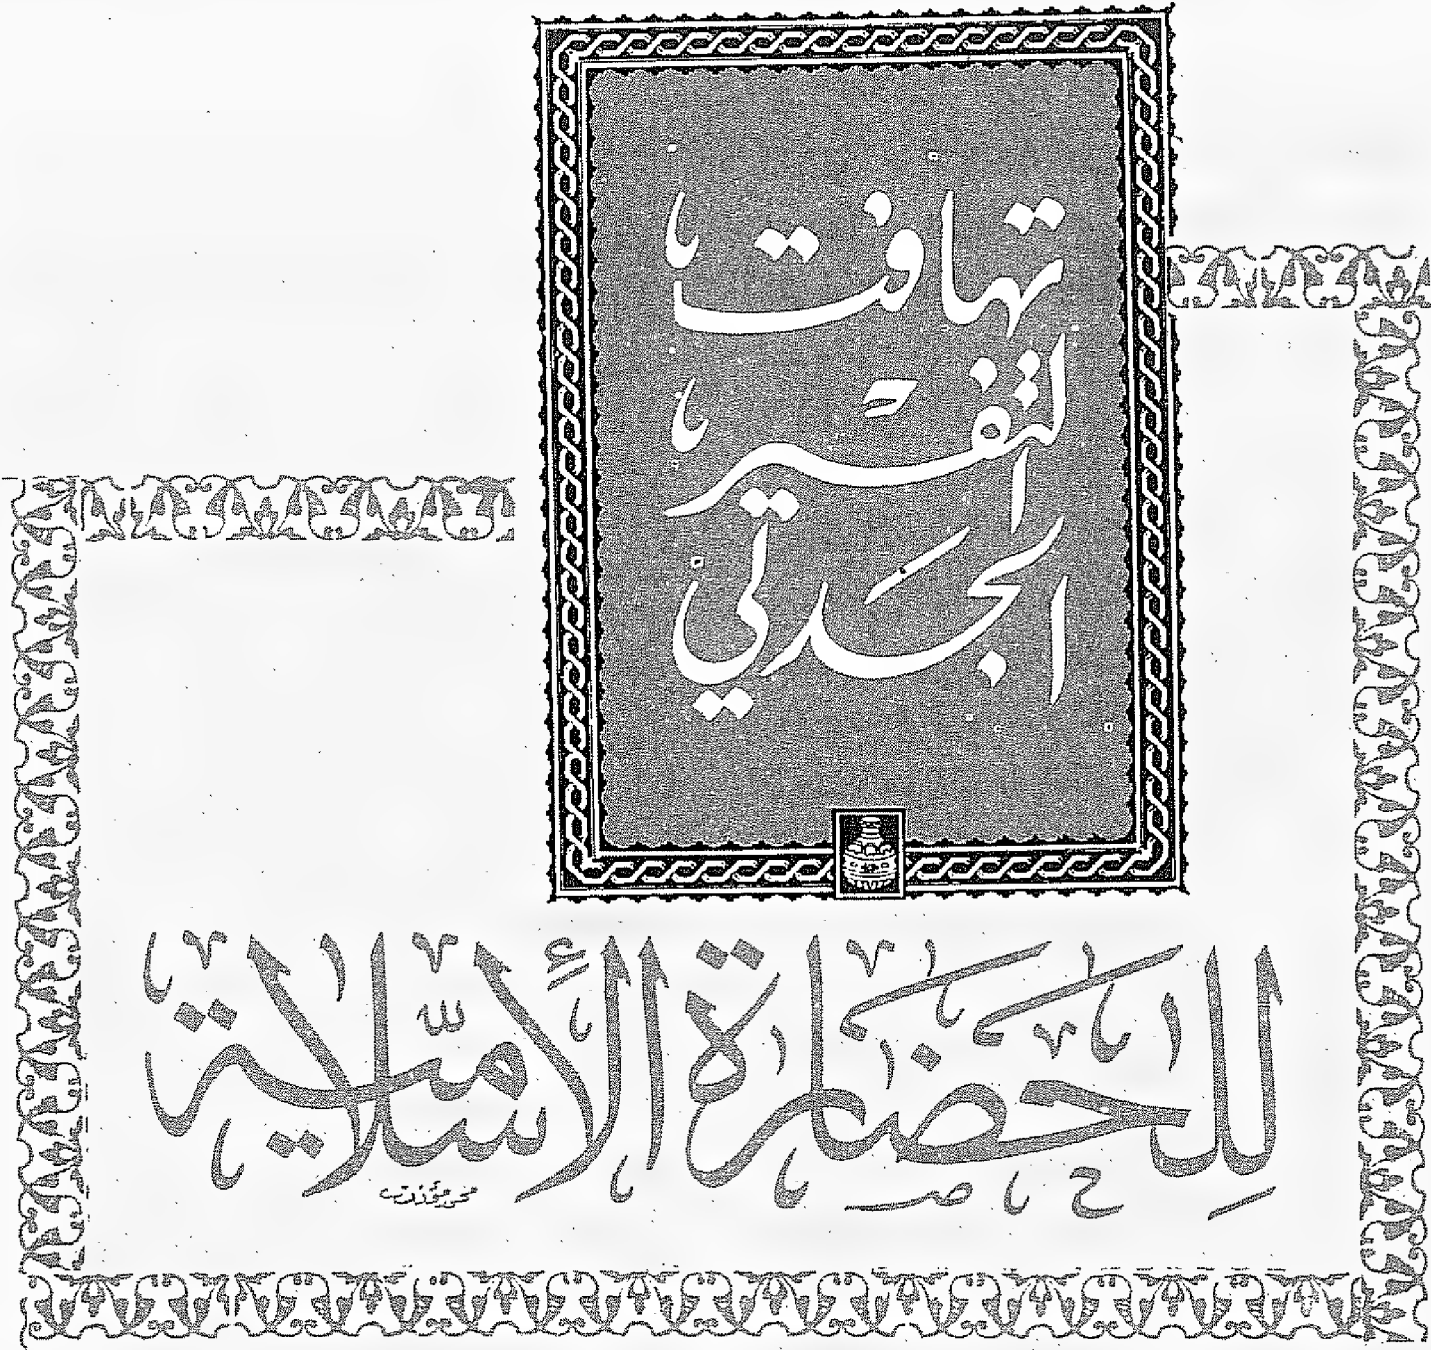 تهافت
التفسير
الجدلي
للحضارة الإسلامية